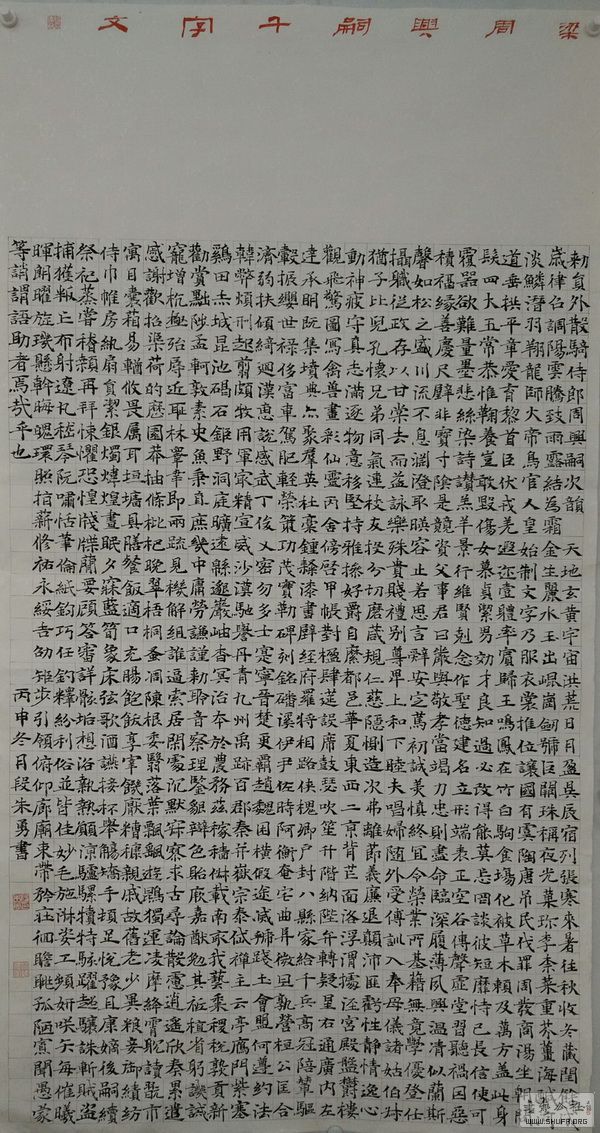 梁周興嗣千字文
勅員外散騎侍郎周興嗣次韻 天地玄黃宇宙洪荒日月盈昃辰宿列張寒來暑往秋收冬藏閏餘成
歲律呂調陽雲騰致雨露結為霜金生麗水玉出崐崗劍號巨闕珠稱夜光菓珍李柰菜重芥薑海鹹河
淡鱗潛羽翔龍師火帝鳥官人皇始制文字乃服衣裳推位讓國有虞陶唐吊民伐罪周發商湯坐朝問
道垂拱平章愛育黎首臣伏戎羌遐邇壹體率賓歸王鳴鳳在竹白駒食場化被草木賴及萬方蓋此身
髮四大五常恭惟鞠養豈敢毀傷女慕貞潔男効才良知過必改得能莫忘罔談彼短靡恃己長信使可
覆器欲難量墨悲絲染詩讃羔羊景行維賢剋念作聖德建名立形端表正空谷傳聲虛堂習聽禍因惡
積福緣善慶尺璧非寶寸陰是競資父事君曰嚴與敬孝當竭力忠則盡命臨深履薄夙興溫清似蘭斯
馨如松之盛川流不息淵澄取暎容止若思言辭安定篤初誠美慎終宜令榮業所基藉甚無竟學優登仕
攝職從政存以甘棠去而益詠樂殊貴賤禮別尊卑上和下睦夫唱婦隨外受傅訓入奉母儀諸姑伯叔
猶子比兒孔懷兄弟同氣連枝交友投分切磨箴規仁慈隱惻造次弗離節義廉退顛沛匪虧性靜情逸心
動神疲守真志滿逐物意移堅持雅操好爵自縻都邑華夏東西二京背芒面洛浮渭據涇宮殿盤鬱樓
觀飛驚圖寫禽獸畫彩仙靈丙舍傍啓甲帳對楹肆筵設席鼓瑟吹笙升階納陛弁轉疑星右通廣內左
達承明既集墳典亦聚群英杜稾鍾隸漆書壁經府羅將相路俠槐卿戶封八縣家給千兵高冠陪輦驅
轂振纓世祿侈富車駕肥輕策功茂實勒碑刻銘磻溪伊尹佐時阿衡奄宅曲阜微旦孰營桓公匡合
濟弱扶傾綺迴漢惠說感武丁俊乂密勿多士寔寧晉楚更霸趙魏困橫假途滅虢踐土會盟何遵約法
韓弊煩刑起翦頗牧用軍最精宣威沙漠馳譽丹青九州禹跡百郡秦并嶽宗泰岱禪主云亭鴈門紫塞
雞田赤城昆池碣石鉅野洞庭曠遠緜邈巖岫杳冥治本於農務茲稼穡俶載南畝我藝黍稷稅熟貢新
勸賞黜陟孟軻敦素史魚秉直庶幾中庸勞謙謹勅聆音察理鑒貌辯色貽厥嘉猷勉其祗植省躬譏誡
寵增抗極殆辱近恥林皋幸即兩疏見機解組誰逼索居閑處沉默寂寥求古尋論散慮逍遙欣奏累遣
慼謝歡招渠荷的歷園莽抽條枇杷晚翠梧桐蚤凋陳根委翳落葉飄颻遊鵾獨運凌摩絳霄耽讀翫市
寓目囊箱易輶攸畏屬耳垣牆具膳飡飯適口充腸飽飫享宰飢厭糟糠親戚故舊老少異糧妾御績紡
侍巾帷房紈扇員潔銀燭煒煌晝眠夕寐藍筍象床弦歌酒讌接杯舉觴矯手頓足悅豫且康嫡後嗣續
祭祀蒸嘗稽顙再拜悚懼恐惶牋牒簡要顧答審詳骸垢想浴執熱願涼驢騾犢特駭躍超驤誅斬賊盜
捕獲叛亡布射遼丸嵇琴阮嘯恬筆倫紙鈞巧任釣釋紛利俗並皆佳妙毛施淑姿工頻妍咲年矢每催曦
暉朗曜旋璣懸斡晦魄環照指薪修祜永綏吉劭矩步引領俯仰廊廟束帶矜莊徊瞻眺孤陋寡聞愚蒙
等誚謂語助者焉哉乎也
丙申冬月段朱勇書
WWW.SHUFA.ORG